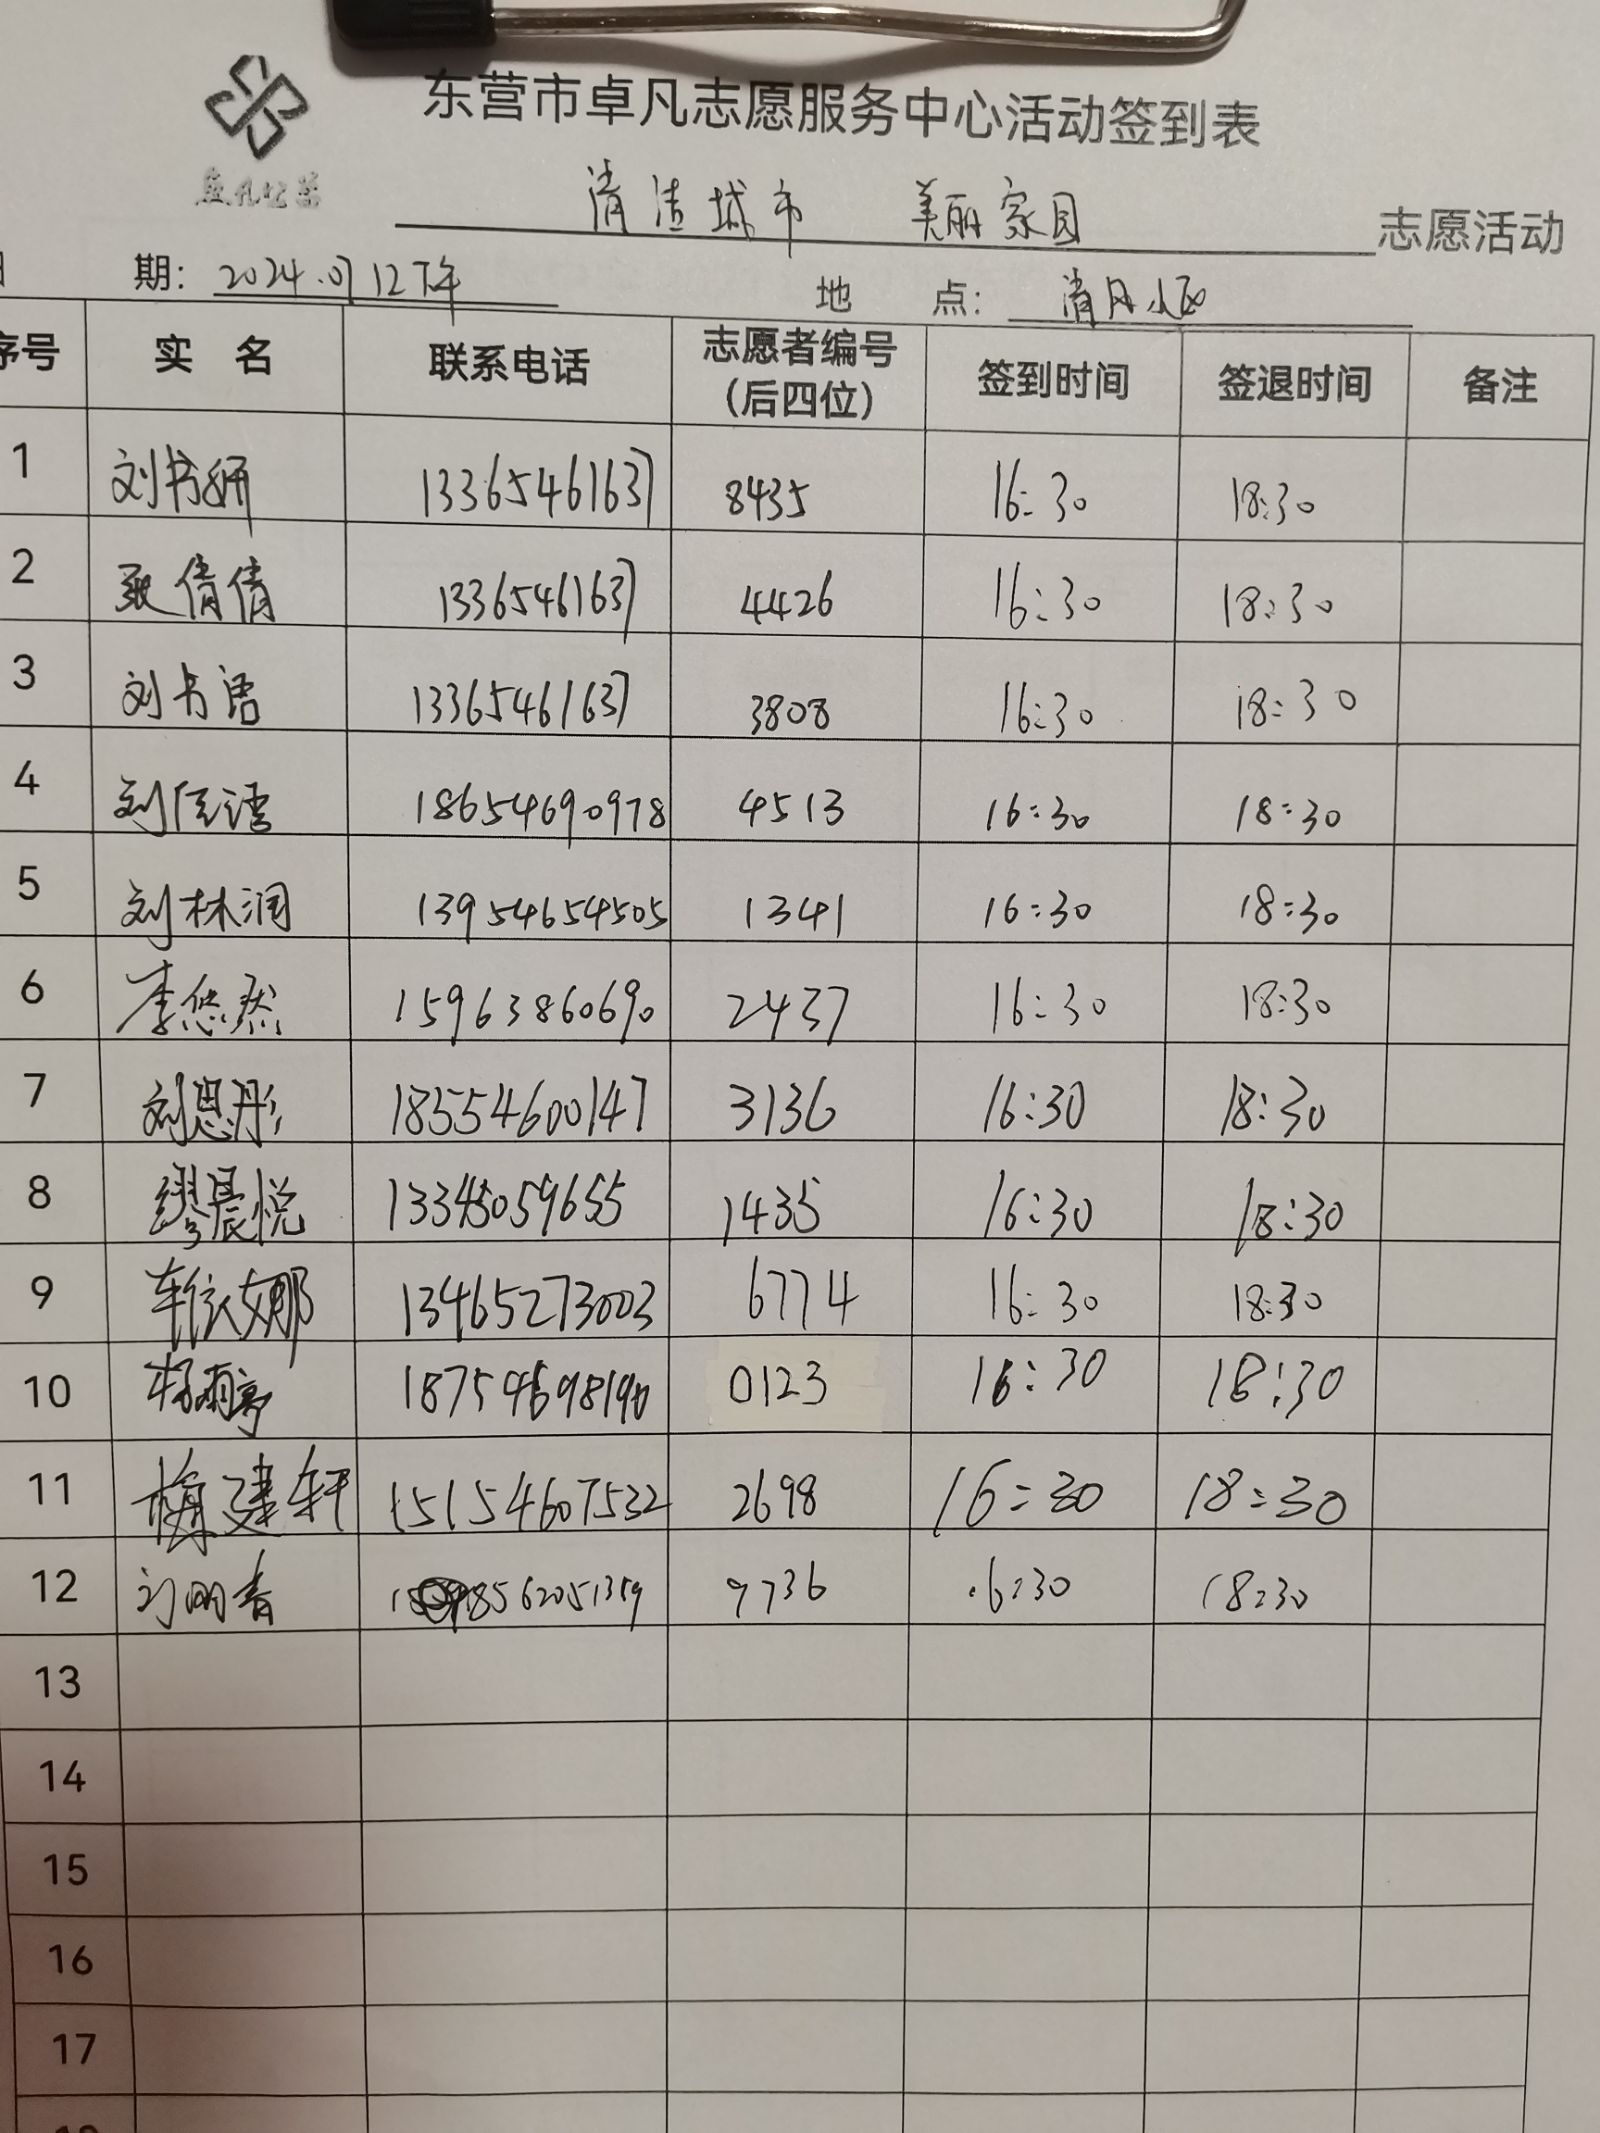 东营市卓凡志愿服务中心活动签到表
清洁城市 美丽家园 志愿活动
期: 2024.07 12下午 地 点: 清风小区
序号 实 名 联系电话 志愿者编号(后四位) 签到时间 签退时间 备注
1 刘书妍 13365461637 8435 16:30 18:30
2 张倩倩 13365461637 4426 16:30 18:30
3 刘书语 13365461637 3808 16:30 18:30
4 刘恒语 18654690978 4513 16:30 18:30
5 刘林润 13954654505 1341 16:30 18:30
6 李悠然 15963860690 2437 16:30 18:30
7 刘思彤 18554600147 3136 16:30 18:30
8 缪晨悦 13345059655 1435 16:30 18:30
9 车依娜 13465273003 6774 16:30 18:30
10 杨雨亭 18754698190 0123 16:30 18:30
11 梅建轩 15154607532 2698 16:30 18:30
12 刘明春 18562051359 9736 16:30 18:30
13
14
15
16
17